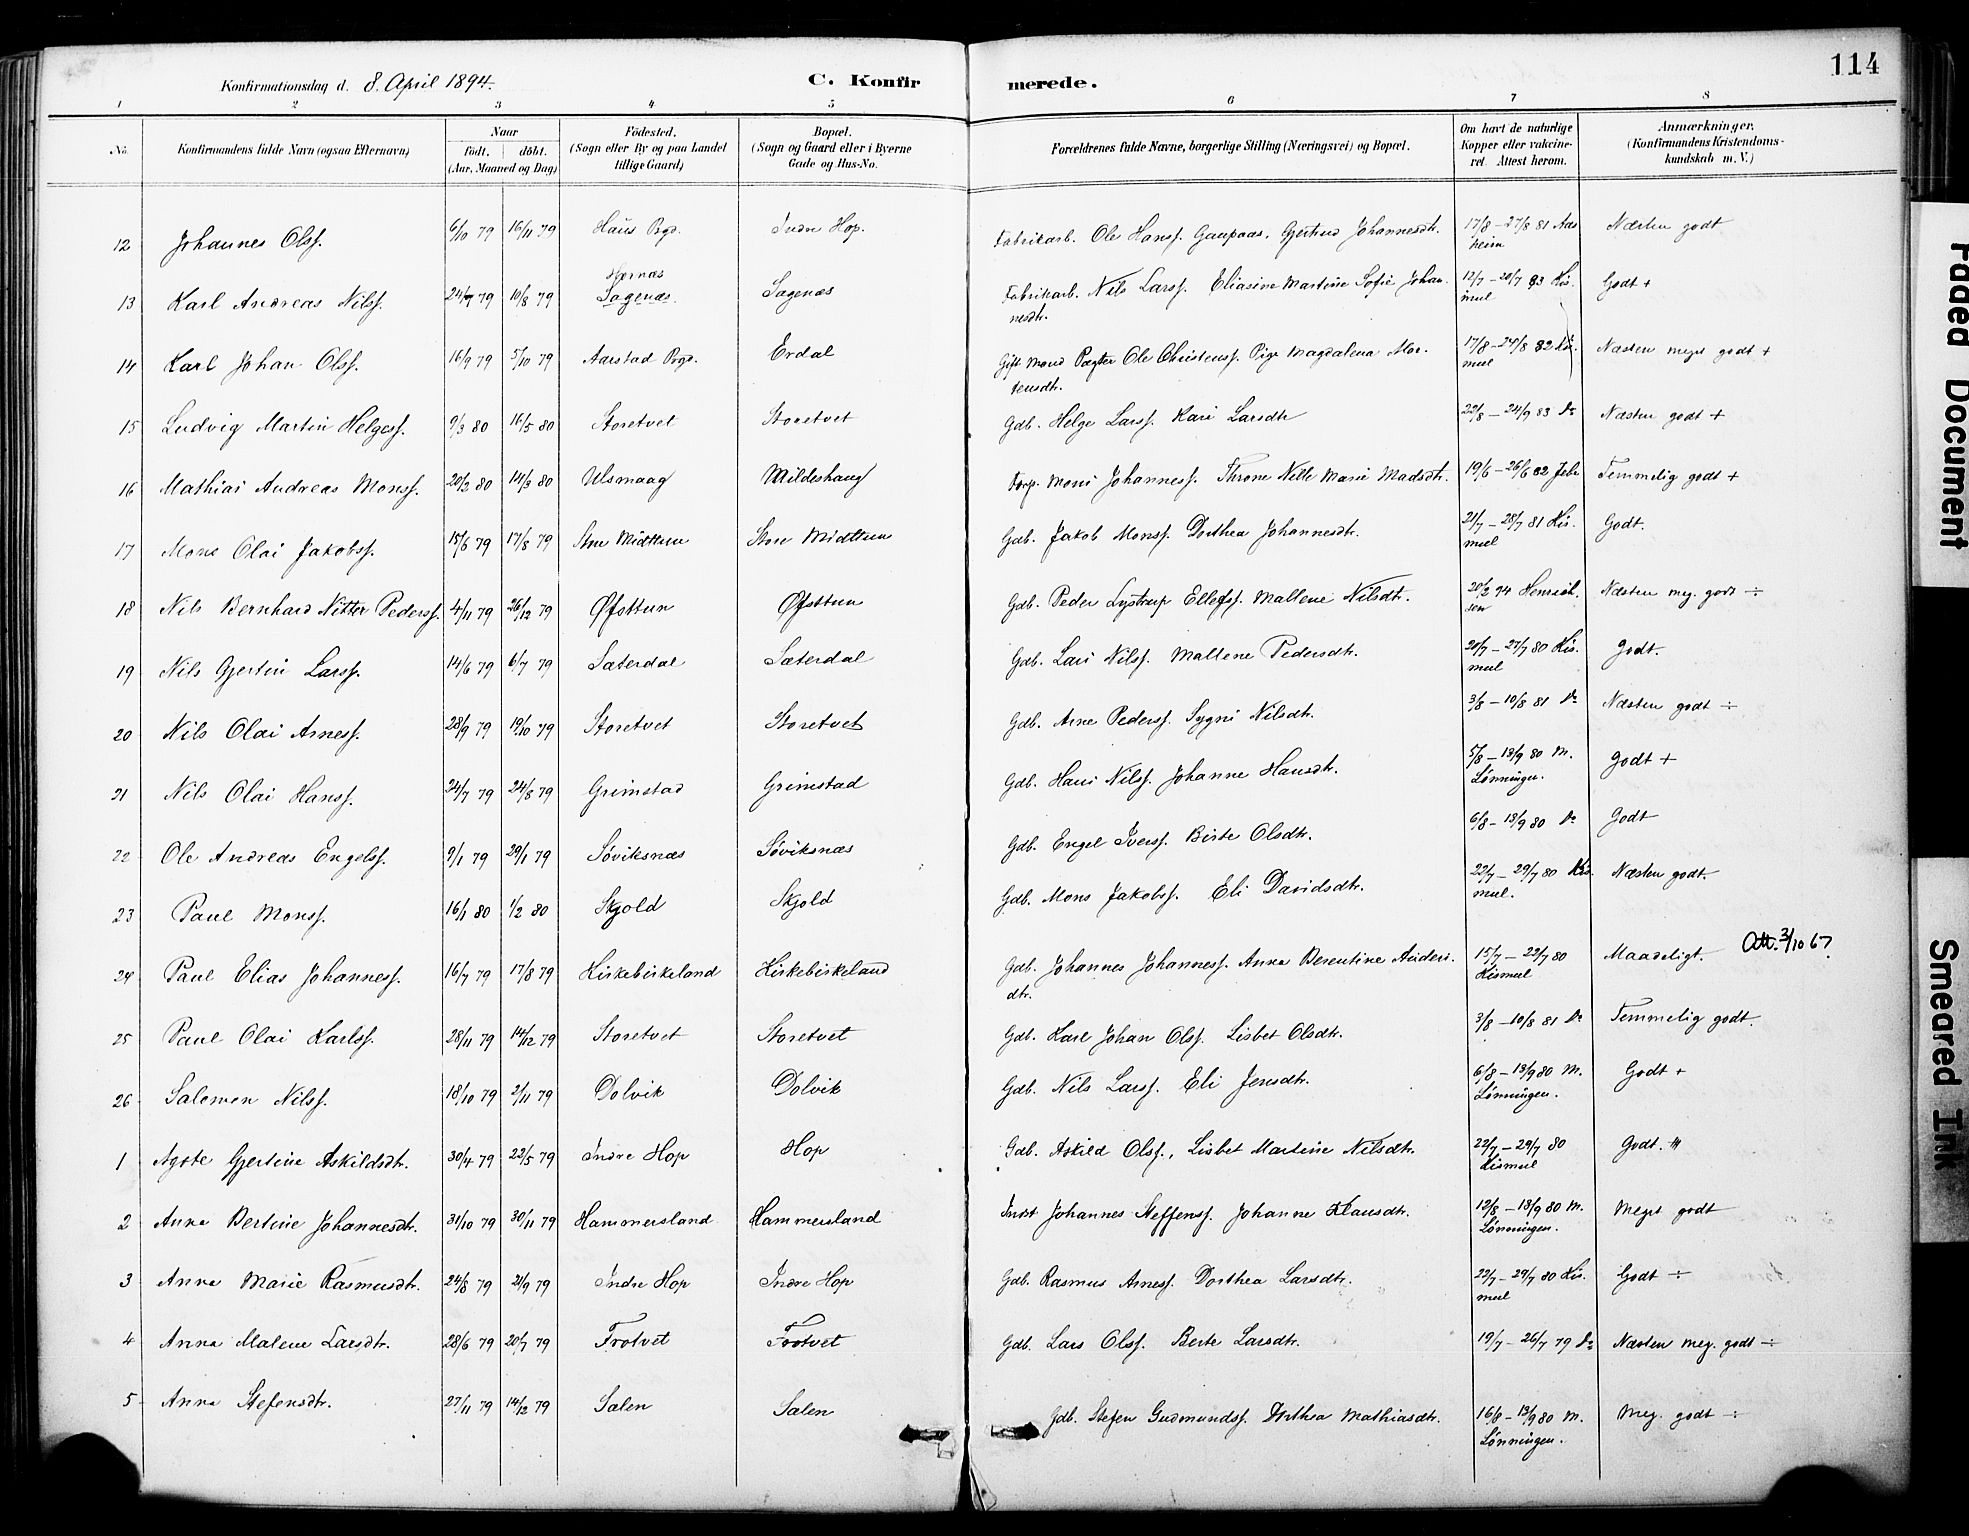 114
Konfirmationsdag d. 8. April 1894.
C. Konfirmerede.
1 2 3 4 5 6 7 8
No. Konfirmandens fulde Navn (ogsaa Efternavn) Naar födt. döbt. (Aar, Maaned og Dag) Födested. (Sogn eller By og paa Landet tillige Gaard) Bopæl. (Sogn og Gaard eller i Byerne Gade og Hus-No. Forældrenes fulde Navne, borgerlige Stilling (Næringsvei) og Bopæl. Om havt de naturlige Kopper eller vakcineret. Attest herom. Anmærkninger. (Konfirmandens Kristendomskundskab m. V.)
12 Johannes Olss. 6/10 79 16/11 79 Haus Pgd. Indre Hop. Fabrikarb. Ole Hanss. Gaupaas. Gjertrud Johannesdtr. 17/8 – 27/8 81 Aasheim Næsten godt
13 Karl Andreas Nilss. 24/7 79 10/8 79 Hernæs Sagenæs. Sagenæs Fabrikarb. Nils Larss. Eliasine Martine Sofie Johannesdtr. 12/7 – 20/7 83 Kismul Godt +
14 Karl Johan Olss. 16/9 79 5/10 79 Aarstad Pgd. Erdal Gift Mand Pagter Ole Christenss. Pige Magdalena Mortensdtr. 17/8 – 24/8 82 Kismul Næsten meget godt +
15 Ludvig Martin Helgess. 9/3 80 16/5 80 Storetvet Storetvet Gdb. Helge Larss. Kari Larsdtr 22/8 – 24/9 83 Do Næsten godt +
16 Mathias Andreas Monss. 20/2 80 14/3 80 Ulsmaag Mildeshaug Forp. Mons Johanness. Throne Nille Marie Madsdtr. 19/6 – 26/6 82 Temmelig godt +
17 Mons Olai Jakobss. 15/6 79 17/8 79 Store Midttun Store Midttun Gdb. Jakob Monss. Dorthea Johannesdtr. 21/7 – 28/7 81 Kismul Godt.
18 Nils Bernhard Nitter Pederss. 4/11 79 26/12 79 Øfsttun Øfsttun Gdb. Peder Lystrup Ellefss. Mallene Nilsdtr. 20/2 94 Henriksen Næsten meg. godt ÷
19 Nils Gjertin Larss. 14/6 79 6/7 79 Sæterdal Sæterdal Gdb. Lars Nilss. Mallene Pedersdtr. 20/7 – 27/7 80 Kismul Godt.
20 Nils Olai Arness. 28/9 79 19/10 79 Storetvet Storetvet Gdb. Arne Pederss. Sygni Nilsdtr. 3/8 – 10/8 81 Do Næsten godt ÷
21 Nils Olai Hanss. 24/7 79 24/8 79 Grimstad Grimstad Gdb. Hans Nilss. Johanne Hansdtr. 5/8 – 13/9 80 M. Lönningen. Godt +
22 Ole Andreas Engelss. 9/1 79 29/1 79 Søviksnæs Søviksnæs Gdb. Engel Iverss. Birte Olsdtr. 6/8 – 13/9 80 Do Godt
23 Paul Monss. 16/1 80 1/2 80 Skjold Skjold Gdb. Mons Jakobss. Eli Davidsdtr. 22/7 – 29/7 80 Kismul. Næsten godt.
24 Paul Elias Johanness. 16/7 79 17/8 79 Kirkebirkeland Kirkebirkeland Gdb. Johannes Johanness. Anna Berentine Andersdtr. 15/7 – 22/7 80 Kismul Maadeligt. Att. 3/10 67
25 Paul Olai Karlss. 28/11 79 14/12 79 Storetvet Storetvet Gdb. Karl Johan Olss. Lisbet Olsdtr. 3/8 – 10/8 81 Do Temmelig godt.
26 Salomon Nilss. 18/10 79 2/11 79 Dolvik Dolvik Gdb. Nils Larss. Eli Jensdtr. 6/8 – 13/9 80 M. Lönningen. Godt +
1 Agote Gjertine Askildsdtr. 30/4 79 22/5 79 Indre Hop Hop Gdb. Askild Olss., Lisbet Martine Nilsdtr. 22/7 – 29/7 80 Kismul Godt.
2 Anna Bertine Johannesdtr. 31/10 79 30/11 79 Hammersland Hammersland Inderst Johannes Steffenss. Johanne Klausdtr. 12/8 – 13/9 80 M. Lönningen. Meget godt
3 Anna Marie Rasmusdtr. 24/8 79 21/9 79 Indre Hop Indre Hop Gdb. Rasmus Arness. Dorthea Larsdtr. 22/7 – 29/7 80 Kismul Godt ÷
4 Anna Malene Larsdtr. 28/6 79 20/7 79 Frotvet Frotvet Gdb. Lars Olss. Berte Larsdtr. 19/7 – 26/7 79 Do Næsten meg. godt ÷
5 Anna Stefensdtr. 27/11 79 14/12 79 Sælen Sælen Gdb. Stefen Gudmundss. Dorthea Mathiasdtr. 16/8 – 13/9 80 M. Lönningen. Meg. godt ÷
Faded Document
Smeared Ink